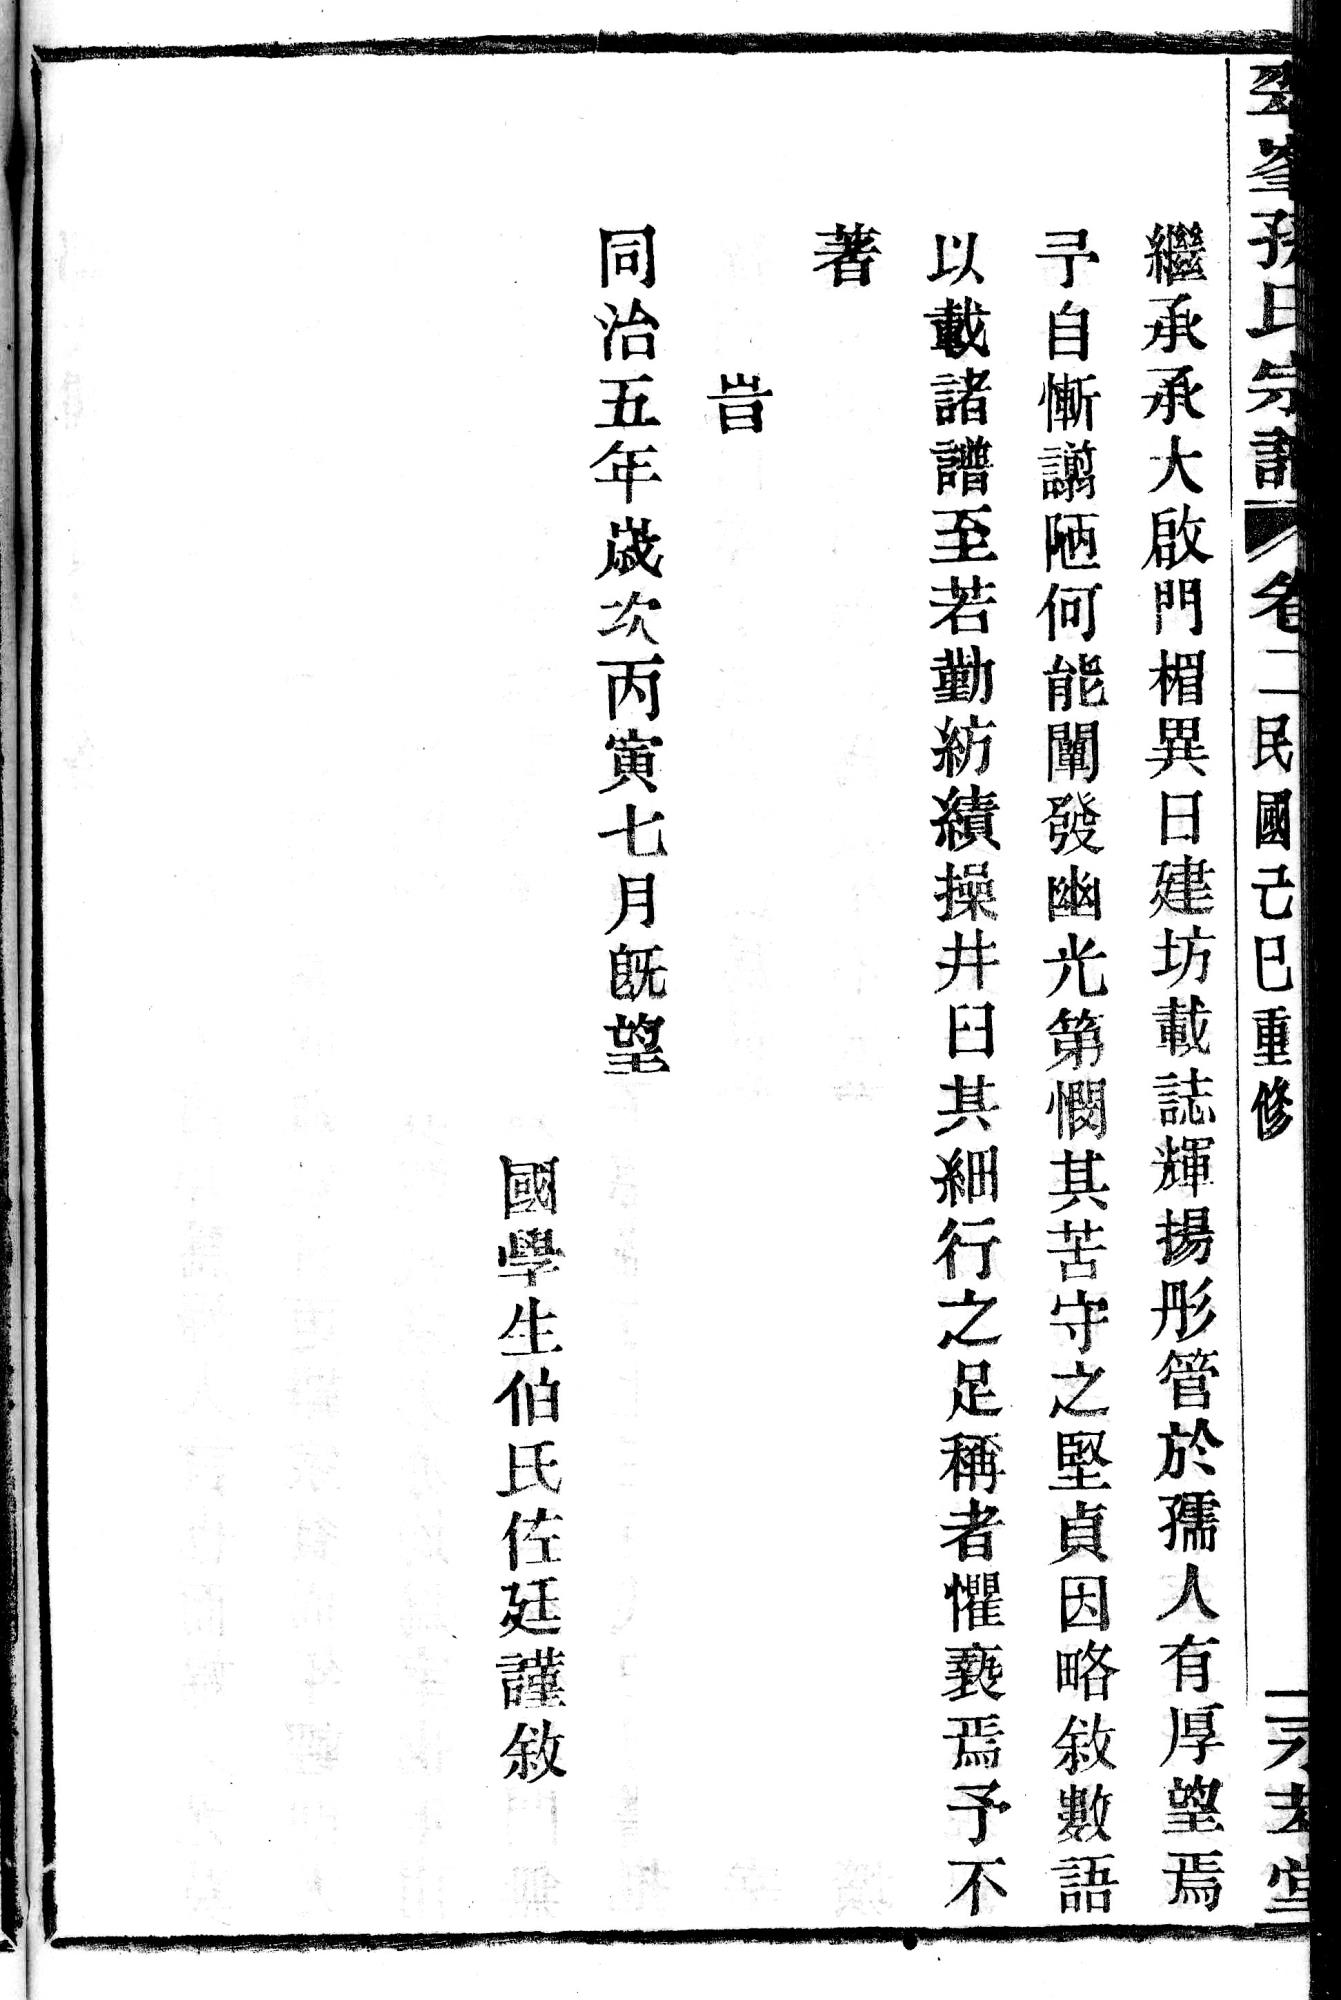 峯孫氏宗譜 卷二 民國己巳重修 堂
繼承承大啟門楣異日建坊載誌輝揚彤管於孺人有厚望焉
予自慚謭陋何能闡發幽光第憫其苦守之堅貞因略敘數語
以載諸譜至若勤紡績操井臼其細行之足稱者懼褻焉予不
著
旹
同治五年歲次丙寅七月旣望
國學生伯氏佐廷謹敘